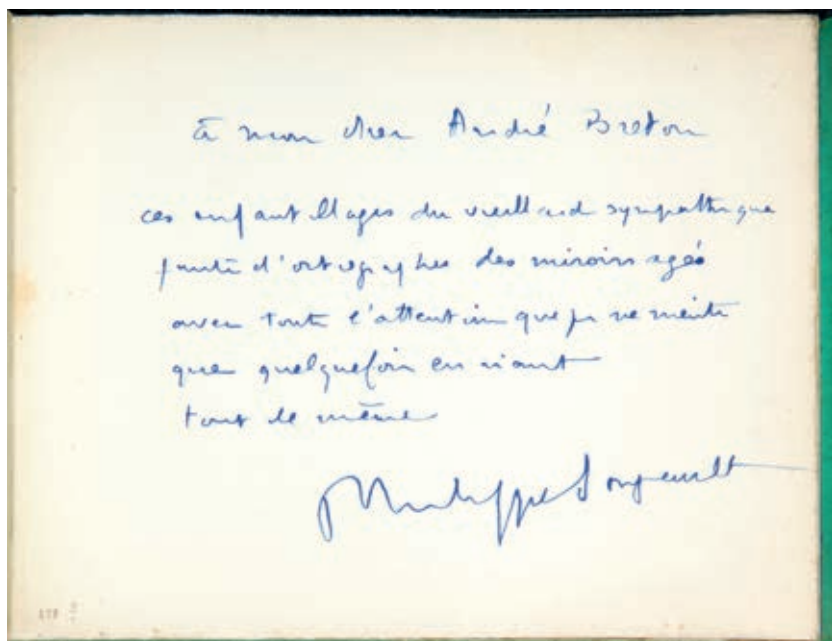 à mon cher André Breton
ces enfantillages du vieillard sympathique
faute d'ortographes des miroirs agés
avec toute l'attention que je ne mérite
que quelquefois en riant
tout de même
Philippe Soupault